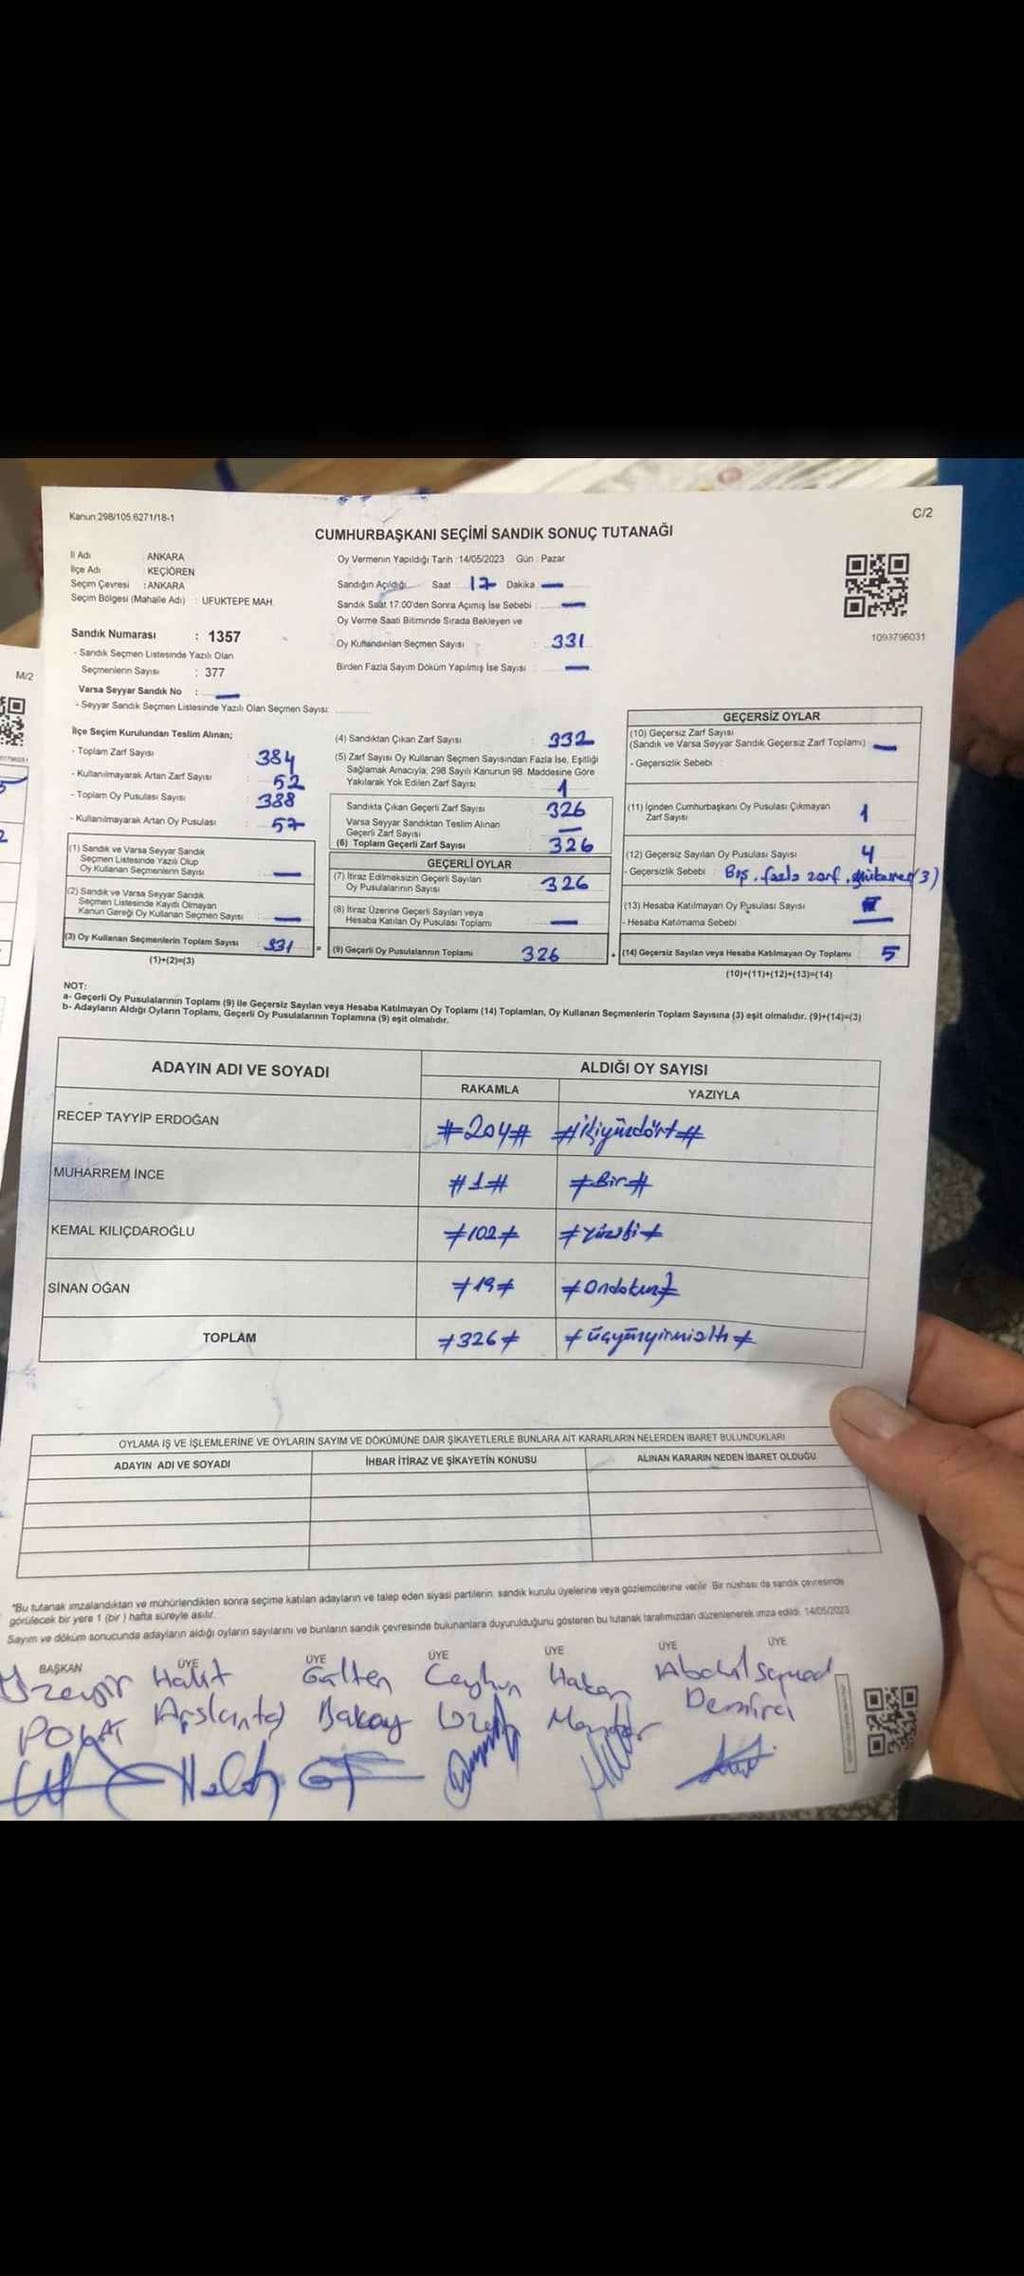 Kanun:298/105.6271/18-1
C/2
CUMHURBAŞKANI SEÇİMİ SANDIK SONUÇ TUTANAĞI
İl Adı : ANKARA
İlçe Adı : KEÇİÖREN
Seçim Çevresi : ANKARA
Seçim Bölgesi (Mahalle Adı) : UFUKTEPE MAH.
Sandık Numarası : 1357
- Sandık Seçmen Listesinde Yazılı Olan
Seçmenlerin Sayısı : 377
Varsa Seyyar Sandık No : —
- Seyyar Sandık Seçmen Listesinde Yazılı Olan Seçmen Sayısı:
Oy Vermenin Yapıldığı Tarih :14/05/2023 Gün : Pazar
Sandığın Açıldığı Saat 17 Dakika —
Sandık Saat 17:00'den Sonra Açımış İse Sebebi : —
Oy Verme Saati Bitiminde Sırada Bekleyen ve
Oy Kullandırılan Seçmen Sayısı : 331
Birden Fazla Sayım Döküm Yapılmış İse Sayısı : —
1093796031
M/2
İlçe Seçim Kurulundan Teslim Alınan;
- Toplam Zarf Sayısı : 384
- Kullanılmayarak Artan Zarf Sayısı : 52
- Toplam Oy Pusulası Sayısı : 388
- Kullanılmayarak Artan Oy Pusulası : 57
(1) Sandık ve Varsa Seyyar Sandık
Seçmen Listesinde Yazılı Olup
Oy Kullanan Seçmenlerin Sayısı : —
(2) Sandık ve Varsa Seyyar Sandık
Seçmen Listesinde Kayıtlı Olmayan
Kanun Gereği Oy Kullanan Seçmen Sayısı : —
(3) Oy Kullanan Seçmenlerin Toplam Sayısı 331
(1)+(2)=(3)
(4) Sandıktan Çıkan Zarf Sayısı : 332
(5) Zarf Sayısı Oy Kullanan Seçmen Sayısından Fazla İse, Eşitliği
Sağlamak Amacıyla; 298 Sayılı Kanunun 98. Maddesine Göre
Yakılarak Yok Edilen Zarf Sayısı : 1
Sandıkta Çıkan Geçerli Zarf Sayısı : 326
Varsa Seyyar Sandıktan Teslim Alınan
Geçerli Zarf Sayısı : —
(6) Toplam Geçerli Zarf Sayısı : 326
GEÇERLİ OYLAR
(7) İtiraz Edilmeksizin Geçerli Sayılan
Oy Pusulalarının Sayısı : 326
(8) İtiraz Üzerine Geçerli Sayılan veya
Hesaba Katılan Oy Pusulası Toplamı : —
= (9) Geçerli Oy Pusulalarının Toplamı 326
GEÇERSİZ OYLAR
(10) Geçersiz Zarf Sayısı
(Sandık ve Varsa Seyyar Sandık Geçersiz Zarf Toplamı) —
- Geçersizlik Sebebi :
(11) İçinden Cumhurbaşkanı Oy Pusulası Çıkmayan
Zarf Sayısı : 1
(12) Geçersiz Sayılan Oy Pusulası Sayısı : 4
- Geçersizlik Sebebi : Boş, fazla zarf, (3)
(13) Hesaba Katılmayan Oy Pusulası Sayısı : —
- Hesaba Katılmama Sebebi :
+ (14) Geçersiz Sayılan veya Hesaba Katılmayan Oy Toplamı 5
(10)+(11)+(12)+(13)=(14)
NOT:
a- Geçerli Oy Pusulalarının Toplamı (9) ile Geçersiz Sayılan veya Hesaba Katılmayan Oy Toplamı (14) Toplamları, Oy Kullanan Seçmenlerin Toplam Sayısına (3) eşit olmalıdır. (9)+(14)=(3)
b- Adayların Aldığı Oyların Toplamı, Geçerli Oy Pusulalarının Toplamına (9) eşit olmalıdır.
ADAYIN ADI VE SOYADI
ALDIĞI OY SAYISI
RAKAMLA YAZIYLA
RECEP TAYYİP ERDOĞAN #204# #ikiyüzdört#
MUHARREM İNCE #1# #Bir#
KEMAL KILIÇDAROĞLU #102# #Yüziki#
SİNAN OĞAN #19# #Ondokuz#
TOPLAM #326# #üçyüzyirmialtı#
OYLAMA İŞ VE İŞLEMLERİNE VE OYLARIN SAYIM VE DÖKÜMÜNE DAİR ŞİKAYETLERLE BUNLARA AİT KARARLARIN NELERDEN İBARET BULUNDUKLARI
ADAYIN ADI VE SOYADI İHBAR İTİRAZ VE ŞİKAYETİN KONUSU ALINAN KARARIN NEDEN İBARET OLDUĞU
"Bu tutanak imzalandıktan ve mühürlendikten sonra seçime katılan adayların ve talep eden siyasi partilerin, sandık kurulu üyelerine veya gözlemcilerine verilir. Bir nüshası da sandık çevresinde
görülecek bir yere 1 (bir ) hafta süreyle asılır.
Sayım ve döküm sonucunda adayların aldığı oyların sayılarını ve bunların sandık çevresinde bulunanlara duyurulduğunu gösteren bu tutanak tarafımızdan düzenlenerek imza edildi. 14/05/2023
BAŞKAN ÜYE ÜYE ÜYE ÜYE ÜYE ÜYE
Üzeyir Halit Gülten Ceyhun Hakan Abdulsamed
POLAT Arslantaş Bakay Demirci